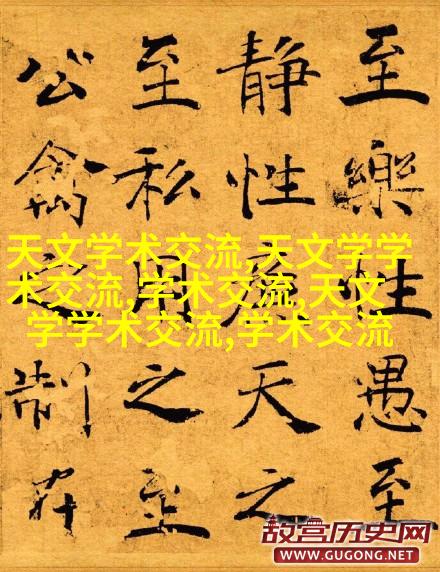 至樂性愚至
静性廉天之
至私用之至
公禽之制在
天文学术交流,天文学学
术交流,学术交流,天文
学学术交流,学术交流
故宫历史网
WWW.GUGONG.NET